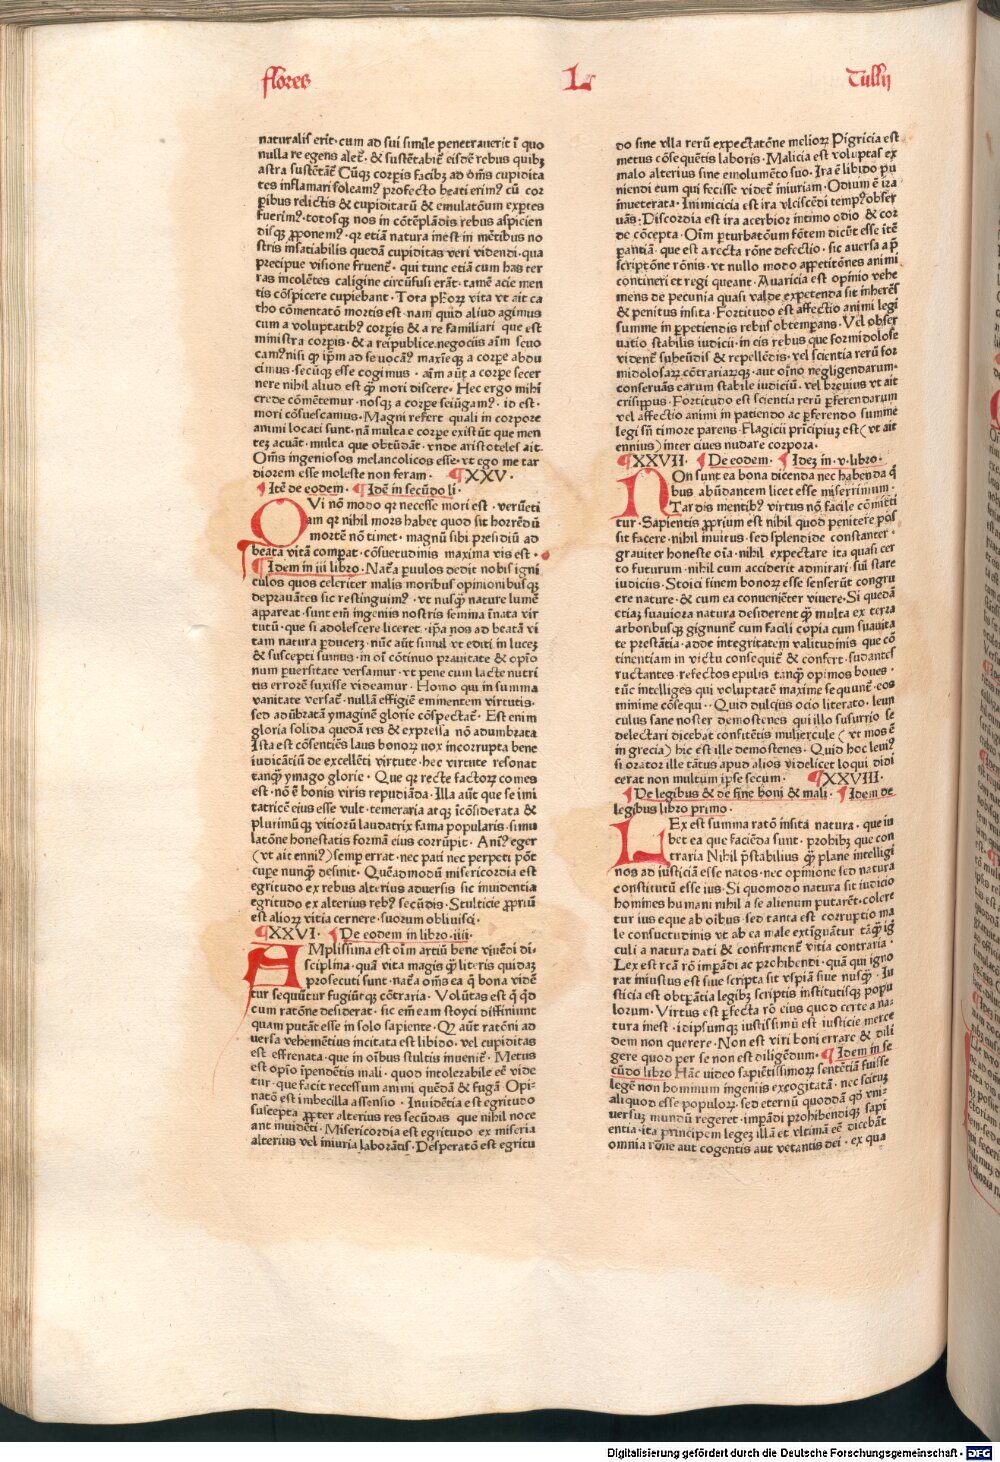 flores L Tullij
naturalis erit· cum ad sui simile penetrauerit ī quo
nulla re egens alet᷒· & sustētabit᷒ eisdē rebus quibꝫ
astra sustētāt᷒ Cūqꝫ corpis facibꝫ ad om̄s cupidita
tes inflamari soleam᷒ profecto beati erim᷒ cū cor
ꝑibus relictis & cupiditatū & emulatōum exptes
fuerim᷒· totosqꝫ nos in cōtēplādis rebus aspicien
disqꝫ ꝓponem᷒· qꝛ etiā natura inest in mētibus no
stris insatiabilis quedā cupiditas veri videndi· qua
precipue visione fruent᷒· qui tunc etiā cum has ter
ras incolētes caligine circūfusi erāt· tamē acie men
tis cōspicere cupiebant· Tota pḣoꝝ vita vt ait ca
tho cōmentatō mortis est· nam quid aliud agimus
cum a voluptatibꝫ corpis & a re familiari que est
ministra corpis· & a rei publice negociis aīm seuo
cam᷒ nisi qꝫ ipm ad se uocam᷒ maxīeqꝫ a corpe abdu
cimus· secūqꝫ esse cogimus· aīm aūt a corpe secer
nere nihil aliud est qꝫ mori discere· Hec ergo mihi
crede cōmētemur· nosqꝫ a corpe seiūgam᷒· id est·
mori cōsuescamus· Magni refert quali in corpore
animi locati sunt· nā multa e corpe existūt que men
teꝫ acuāt· multa que obtūdāt· vnde aristoteles ait·
Om̄s ingeniosos melancolicos esse· vt ego me tar
diorem esse moleste non feram· ¶XXV·
¶Itē de eodem· ¶Idē in secūdo li·
QVi nō modo qꝛ necesse mori est· veru̅eti
am qꝛ nihil mors habet quod sit horrēdū
mortē nō timet· magnū sibi presidiū ad
beatā vitā compat· cōsuetudinis maxima vis est·
¶Idem in iii libro· Nat᷒a paruulos dedit nobis igni
culos quos celeriter malis moribus opinionibusqꝫ
deprauātes sic restinguim᷒· vt nusqꝫ nature lumē
appareat· sunt em̄ ingeniis nostris semina īnata vir
tutū· que si adolescere liceret· ipa nos ad beatā vi
tam natura ꝓducereꝫ· nūc aūt simul vt editi in luceꝫ
& suscepti sumus· in oī cōtinuo prauitate & opīo
num puersitate versamur· vt pene cum lacte nutri
tis errorē suxisse videamur· Homo qui in summa
vanitate versat᷒· nullā effigiē eminentem virtutis·
sed adūbratā ymaginē glorie cōspectat᷒· Est enim
gloria solida quedā res & expressa nō adumbrata
Ista est cōsentiēs laus bonoꝝ uox incorrupta bene
iudicātiū de excellēti virtute· hec virtute resonat
tanqꝫ ymago glorie· Que qꝛ recte factoꝝ comes
est· nō ē bonis viris repudiāda· Illa aūt que se imi
tatricē eius esse vult· temeraria atqꝫ īcōsiderata &
plurimūqꝫ vitiorū laudatrix fama popularis· simu
latōne honestatis formā eius corrūpit· Ani᷒ eger
(vt ait enni᷒) semp errat· nec pati nec perpeti pōt
cupe nunqꝫ desinit· Quēadmodū misericordia est
egritudo ex rebus alterius aduersis· sic inuidentia
egritudo ex alterius reb᷒ secūdis· Stulticie ꝓpriū
est alioꝝ vitia cernere· suorum obliuisci·
¶XXVI· ¶De eodem in libro·iiii·
AMplissima est oīm artiū bene viuēdi di
sciplina· quā vita magis qꝫ literis quidaꝫ
prosecuti sunt· nat᷒a om̄s ea q̄ bona vidē
tur sequūtur fugiūtqꝫ cōtraria· Volūtas est q̄ qd̄
cum ratōne desiderat· sic em̄ eam stoyci diffiniunt
quam putāt esse in solo sapiente· Qꝫ aūt ratōni ad
uersa vehemētius incitata est libido· vel cupiditas
est effrenata· que in oībus stultis inuenit᷒· Metus
est opīo īpendētis mali· quod intolerabile eē vide
tur· que facit recessum animi quēdā & fugā Opi
natō est imbecilla assensio· Inuidētia est egritudo
suscepta ꝓpter alterius res secūdas que nihil noce
ant inuidēti· Misericordia est egritudo ex miseria
alterius vel iniuria laborātis· Desperatō est egritu
do sine vlla rerū expectatōne melioꝝ Pigricia est
metus cōsequētis laboris· Malicia est voluptas ex
malo alterius sine emolumēto suo· Ira ē libido pu
niendi eum qui fecisse videt᷒ iniuriam· Odium ē ira
inueterata· Inimicicia est ira vlciscēdi temp᷒ obser
uās· Discordia est ira acerbior intimo odio & cor
de cōcepta· Oīm pturbatōum fōtem dicūt esse ītē
pantiā· que est a recta rōne defectio· sic auersa a p̄
scriptōne rōnis· vt nullo modo appetitōnes animi
contineri et regi queant· Auaricia est opinio vehe
mens de pecunia quasi valde expetenda sit inherēs
& penitus insita· Fortitudo est affectio animi legi
summe in ppetiendis rebus obtempans· Vel obser
uatio stabilis iudicii· in eis rebus que formidolose
vident᷒ subeūdis & repellēdis· vel scientia rerū for
midolosaꝝ cōtrariarqꝫ· aut oīno negligendarum·
conseruās earum stabile iudiciū· vel breuius vt ait
crisippus· Fortitudo est scientia rerū pferendarum
vel affectio animi in patiendo ac pferendo summe
legi sn̄ timore parens· Flagicii prīcipiuꝫ est (vt ait
ennius) inter ciues nudare corpora·
¶XXVII· ¶De eodem· ¶Ideꝫ in·v·libro·
NOn sunt ea bona dicenda nec habenda q̄
bus abūdantem licet esse miserrimum·
Tardis mentibꝫ virtus nō facile cōmitti
tur· Sapientis ꝓprium est nihil quod penitere pos
sit facere· nihil inuitus· sed splendide constanter·
grauiter honeste oīa· nihil expectare ita quasi cer
to futurum· nihil cum acciderit admirari· sui stare
iudicius· Stoici finem bonoꝝ esse senserūt congru
ere nature· & cum ea conueniēter viuere· Si quedā
etiaꝫ suauiora natura desiderent qꝫ multa ex terra
arboribusqꝫ gignunt᷒ cum facili copia cum suauita
te prestātia· adde integritatem valitudinis que cō
tinentiam in victu consequit᷒ & confert· sudantes
ructantes· refectos epulis tanqꝫ opimos boues·
tūc intelliges qui voluptatē maxime sequunt᷒· eos
minime cōsequi·· Quid dulcius ocio literato· leun
culus sane noster demostenes qui illo susurrio se
delectari dicebat confitētis muliercule (vt mos ē
in grecia) hic est ille demostenes· Quid hoc leui᷒
si orator ille tātus apud alios videlicet loqui didi
cerat non multum ipse secum· ¶XXVIII·
¶De legibus & de fine boni & mali· ¶Idem de
legibus libro primo·
LEx est summa ratō insita natura· que iu
bet ea que faciēda sunt· prohibꝫ que con
traria Nihil p̄stabilius qꝫ plane intelligi
nos ad iusticiā esse natos· nec opinione sed natura
constitutū esse ius· Si quomodo natura sit iudicio
homines humani nihil a se alienum putarēt· colere
tur ius eque ab oībus· sed tanta est corruptio ma
le consuetudinis vt ab ea male extīguāt᷒ tāqꝫ ig
culi a natura dati & confirment᷒ vitia contraria·
Lex est rc̄a rō impādi ac prohibendi· quā qui igno
rat iniustus est siue scripta sit vspiā siue nusqꝫ· Iu
sticia est obtpātia legibꝫ scriptis institutisqꝫ popu
lorum· Virtus est pfecta rō eius quod certe a na
tura inest· idipsumqꝫ iustissimū est iusticie merce
dem non querere· Non est viri boni errare & dili
gere quod per se non est diligēdum· ¶Idem in se
cūdo libro Hāc video sapiētissimoꝝ sentētiā fuisse
legē non hominum ingeniis excogitatā· nec scituꝫ
aliquod esse populoꝝ· sed eternū quoddā qd̄ vni
uersuꝫ mundū regeret· impādi prohibendiqꝫ sapi
entia· ita principem legeꝫ illā et vltimā eē dicebāt
omnia rōne aut cogentis aut vetantis dei· ex qua
Digitalisierung gefördert durch die Deutsche Forschungsgemeinschaft · DFG